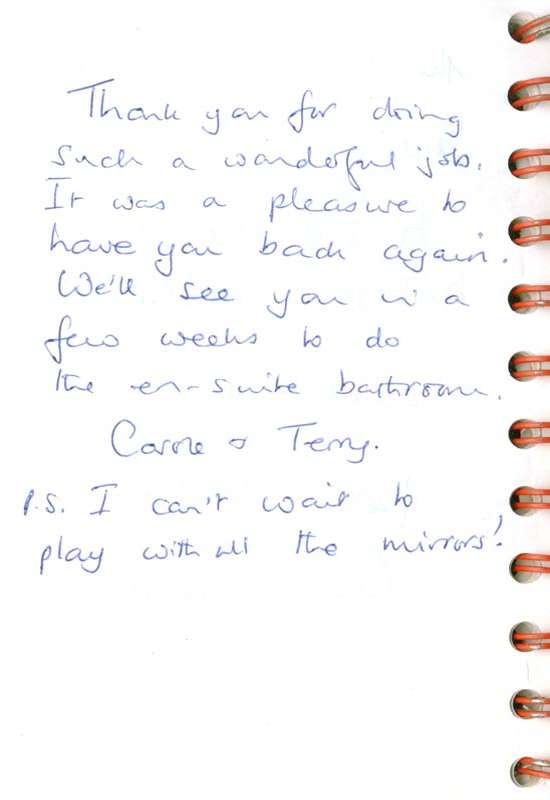 Thank you for doing
such a wonderful job.
It was a pleasure to
have you back again.
We'll see you in a
few weeks to do
the en-suite bathroom.
Carole & Terry.
P.S. I can't wait to
play with all the mirrors!